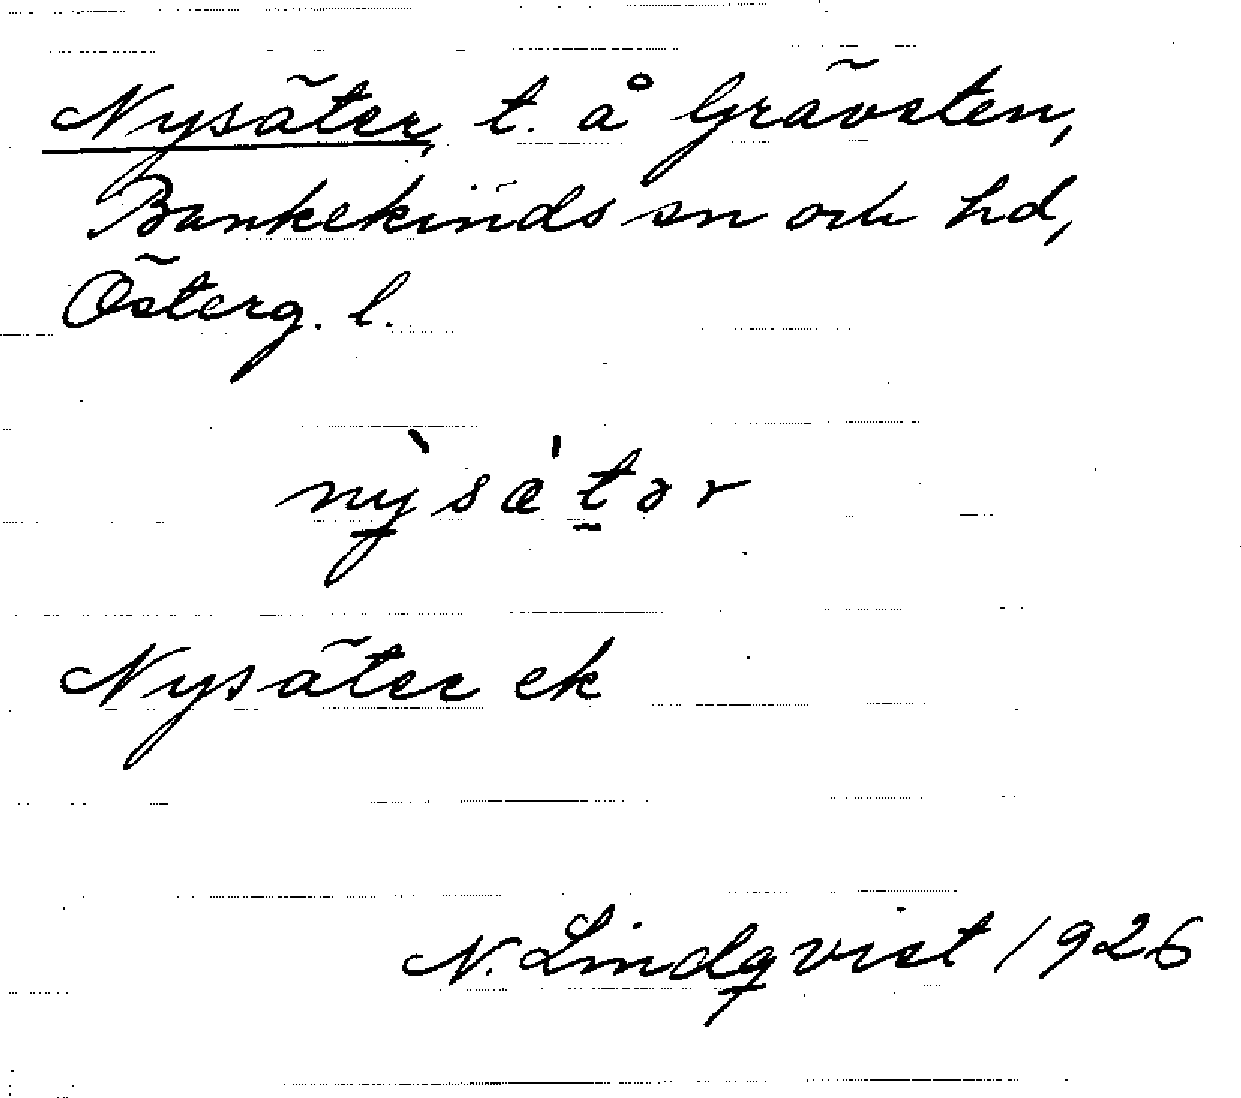 Nysäter, t. å Grävsten,
Bankekinds sn och hd,
Österg. l.
nỳsǽtər
Nysäter ek
N. Lindqvist 1926